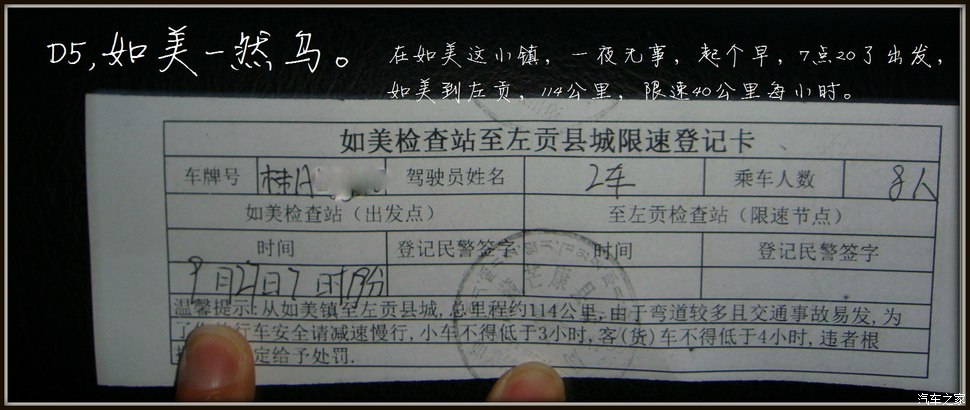 D5,如美一然乌。
在如美这小镇，一夜无事，起个早，7点20了出发，
如美到左贡，114公里，限速40公里每小时。
如美检查站至左贡县城限速登记卡
车牌号 桂A 驾驶员姓名 2车 乘车人数 8人
如美检查站（出发点） 至左贡检查站（限速节点）
时间 登记民警签字 时间 登记民警签字
9月27日7时 份
温馨提示:从如美镇至左贡县城,总里程约114公里,由于弯道较多且交通事故易发,为
了 行车安全请减速慢行,小车不得低于3小时,客(货)车不得低于4小时,违者根
定给予处罚.
芒康县
汽车之家